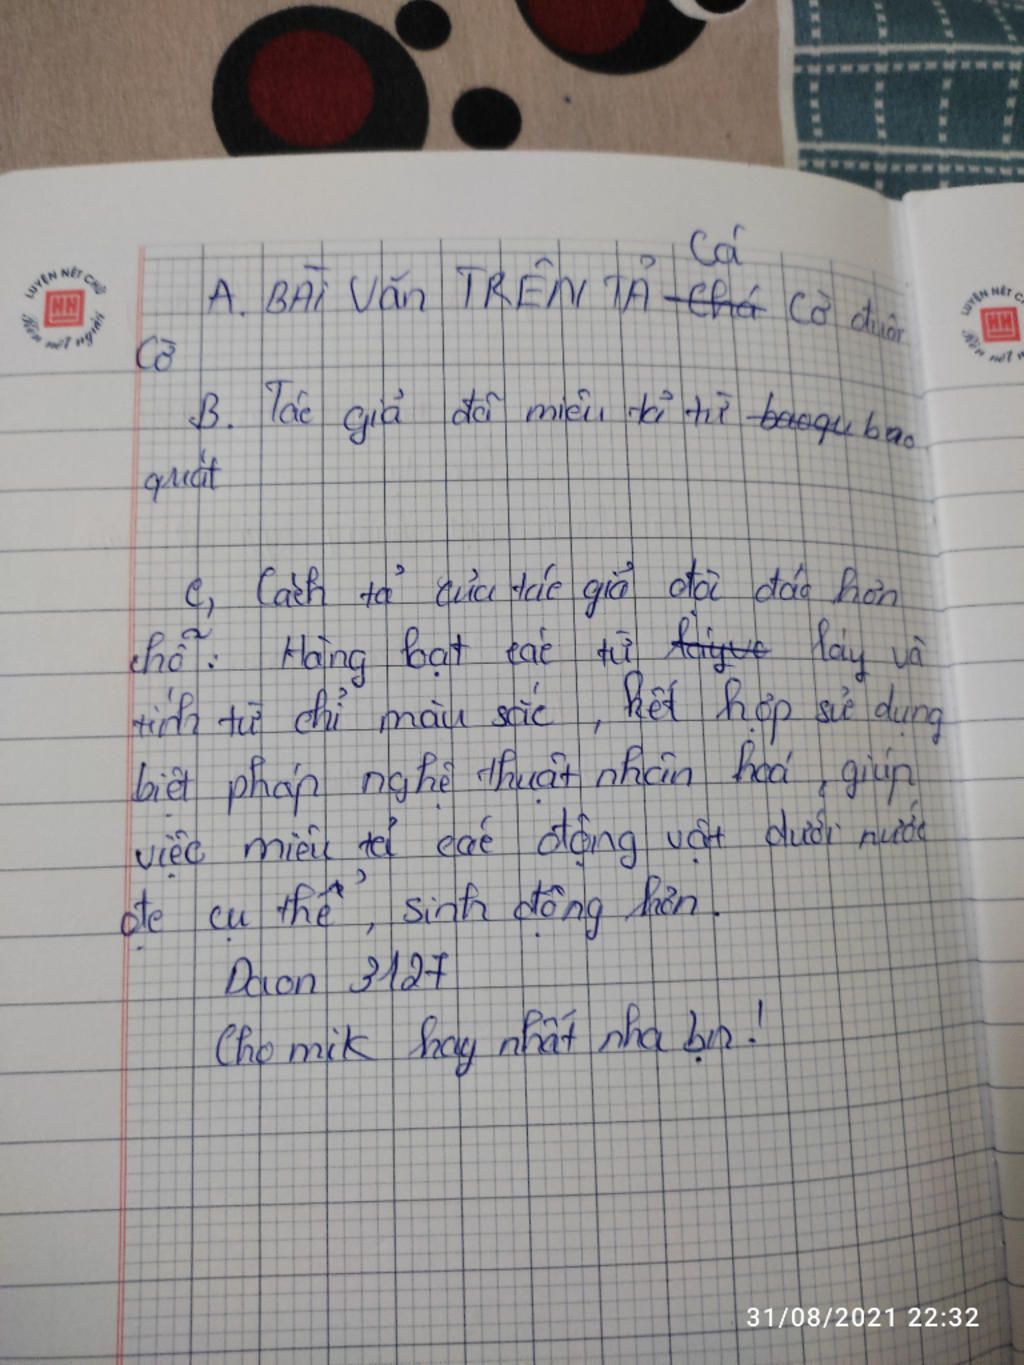 LUYỆN NÉT CHỮ
Rèn nết người
LUYỆN NÉT C
Rèn nết n
Cá
A. BÀI Văn TRÊN TẢ Chá Cờ đuôi
Cờ
B. Tác giả đã miêu tả từ baoqu bao
quát
C, Cách tả của tác giả độc đáo hơn
chỗ: Hàng loạt các từ láy và
tính từ chỉ màu sắc, kết hợp sử dụng
biệt pháp nghệ thuật nhân hoá, giúp
việc miêu tả các động vật dưới nước
đc cụ thể, sinh động hơn.
Daon 3127
Cho mik hay nhất nha bn!
31/08/2021 22:32